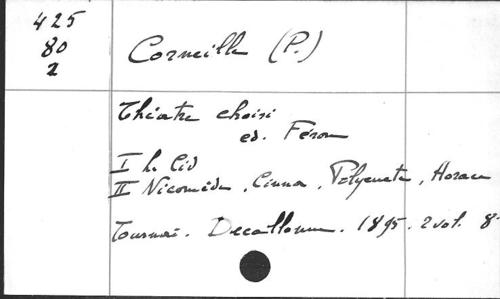 425
80
2
Corneille (P.)
Théatre choisi
ed. Féron
I Le Cid
II Nicomède, Cinna, Polyeucte, Horace
Tournai. Decallonne. 1895. 2 vol. 8°